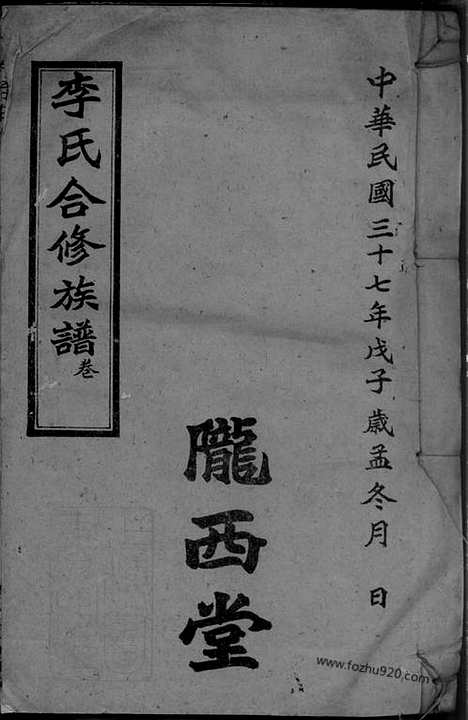 中華民國三十七年戊子歲孟冬月　日
隴西堂
李氏合修族譜卷
www.fozhu920.com